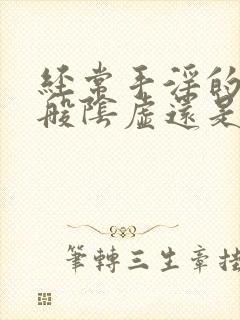 經常手淫的
般陰虛還是
筆轉三生章推